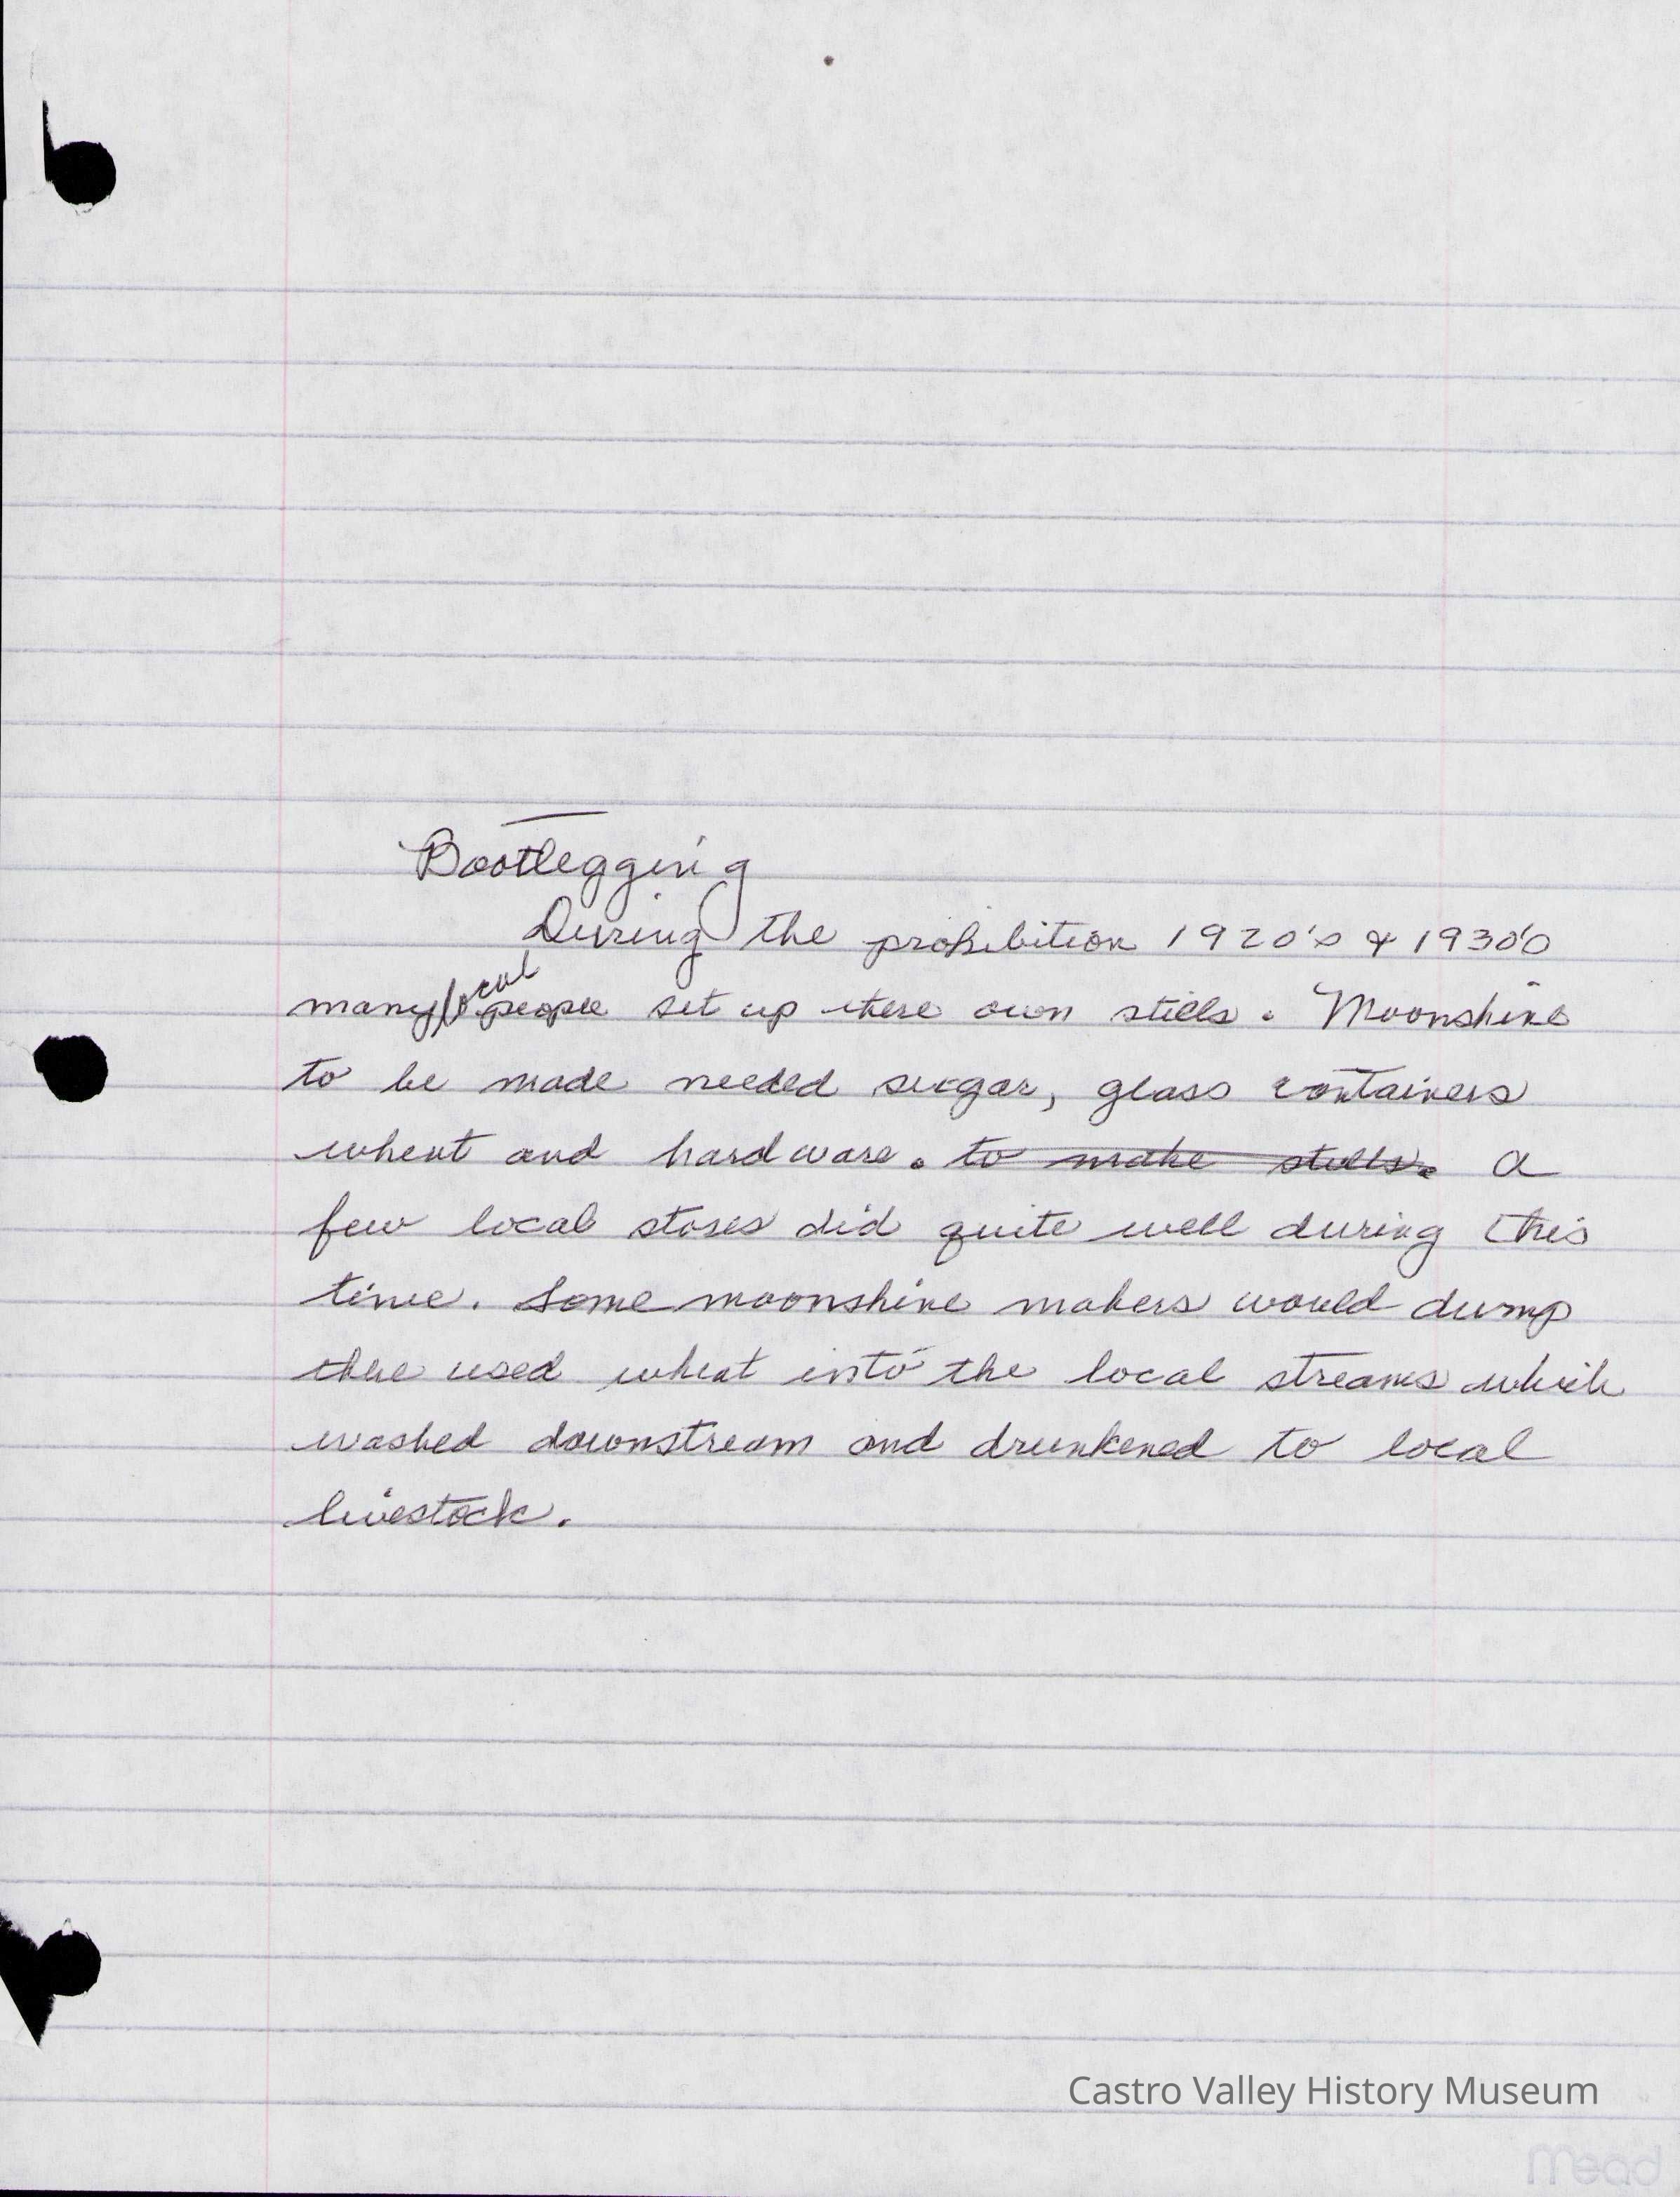 Bootlegging
During the prohibition 1920's & 1930's
many local people set up there own stills. Moonshine
to be made needed sugar, glass containers
wheat and hardware. to make stills. a
few local stores did quite well during this
time. Some moonshine makers would dump
the used wheat into the local streams which
washed downstream and drunkened to local
livestock.
Castro Valley History Museum
mead